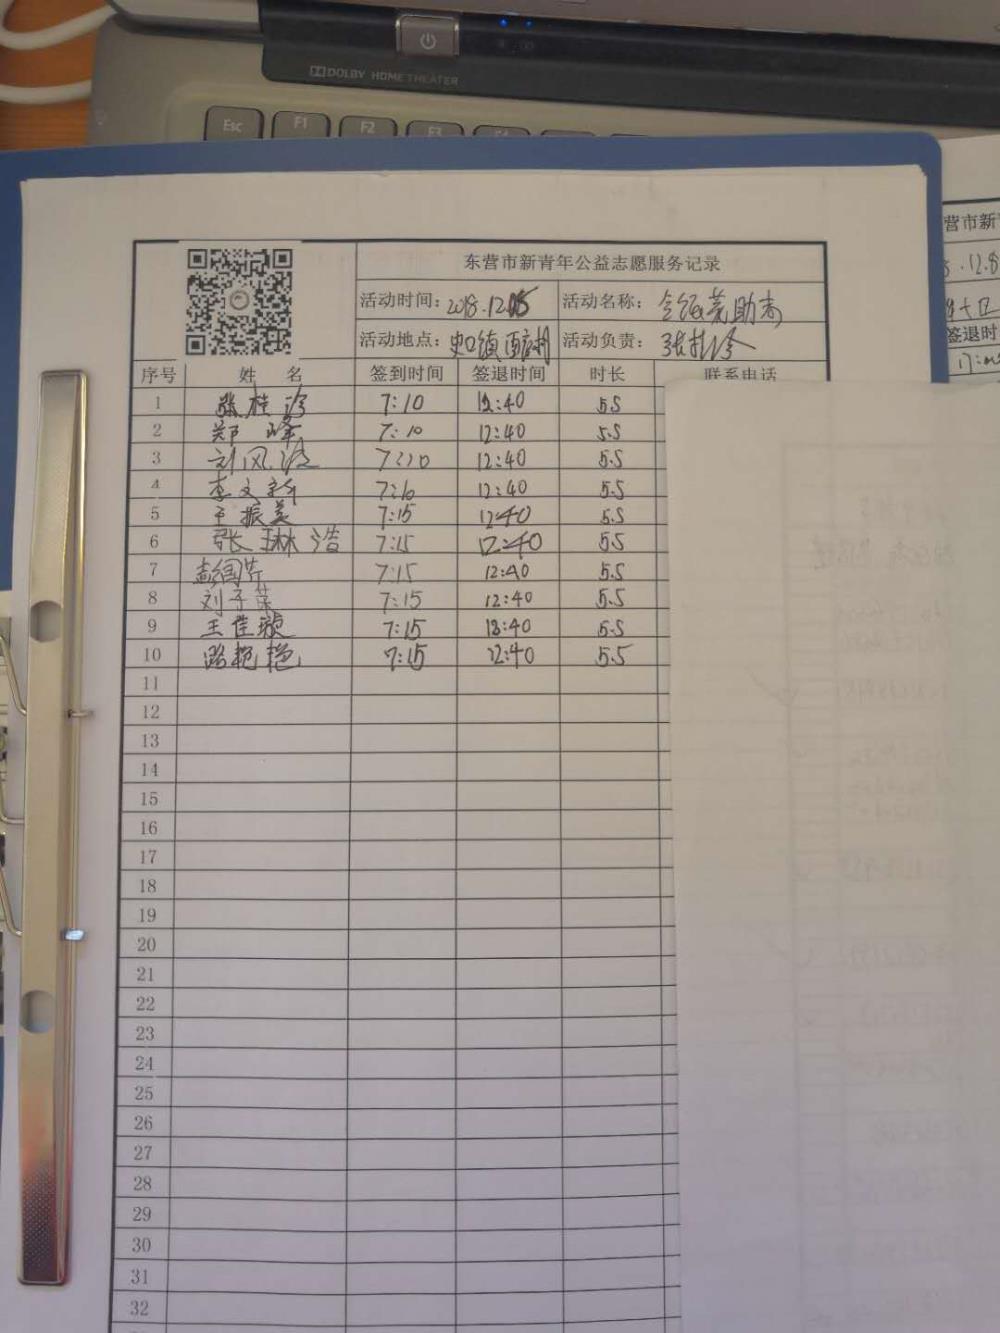 DOLBY HOME THEATER
Esc F1 F2 F3 F4
东营市新青年公益志愿服务记录
活动时间：2018.12.15 活动名称：助老
活动地点：史口镇 活动负责：张桂珍
序号 姓 名 签到时间 签退时间 时长 联系电话
1 张桂珍 7:10 12:40 5.5
2 郑峰 7:10 12:40 5.5
3 刘风波 7:10 12:40 5.5
4 李文新 7:10 12:40 5.5
5 王振美 7:15 12:40 5.5
6 张琳浩 7:15 12:40 5.5
7 彭国芹 7:15 12:40 5.5
8 刘子 7:15 12:40 5.5
9 王佳璇 7:15 12:40 5.5
10 路艳艳 7:15 12:40 5.5
11
12
13
14
15
16
17
18
19
20
21
22
23
24
25
26
27
28
29
30
31
32
营市新
.12.8
签退时